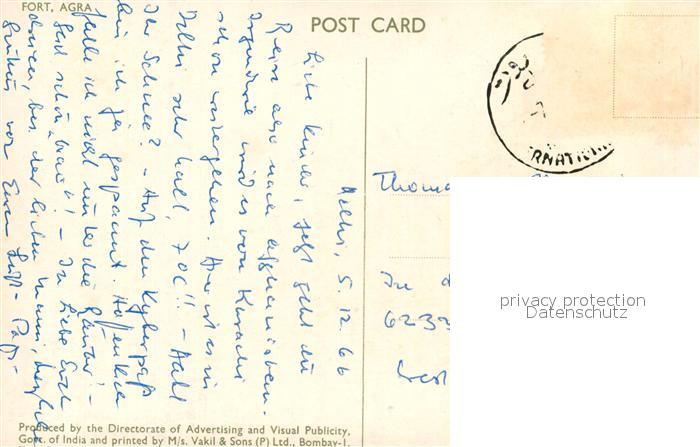 FORT, AGRA
POST CARD
Delhi, 5.12.66
Liebe Kinder, jetzt geht die
Reise also nach Afghanistan.
Irgendwie wird es von Karachi
schon weitergehen. Heut ist es in
Delhi sehr kalt, 7°C!!
Der Schnee? - Auf den Kyberpaß
bin ich ja gespannt. Hoffentlich
falle ich nicht unter die Räuber! -
Seid schön brav! - In Liebe Euch
allen, bes. der lieben Mammi, herzliche
Grüße von Eurem
Papi
Thoma
In d
623
RNATION
privacy protection
Datenschutz
Produced by the Directorate of Advertising and Visual Publicity,
Govt. of India and printed by M/s. Vakil & Sons (P) Ltd., Bombay-1.